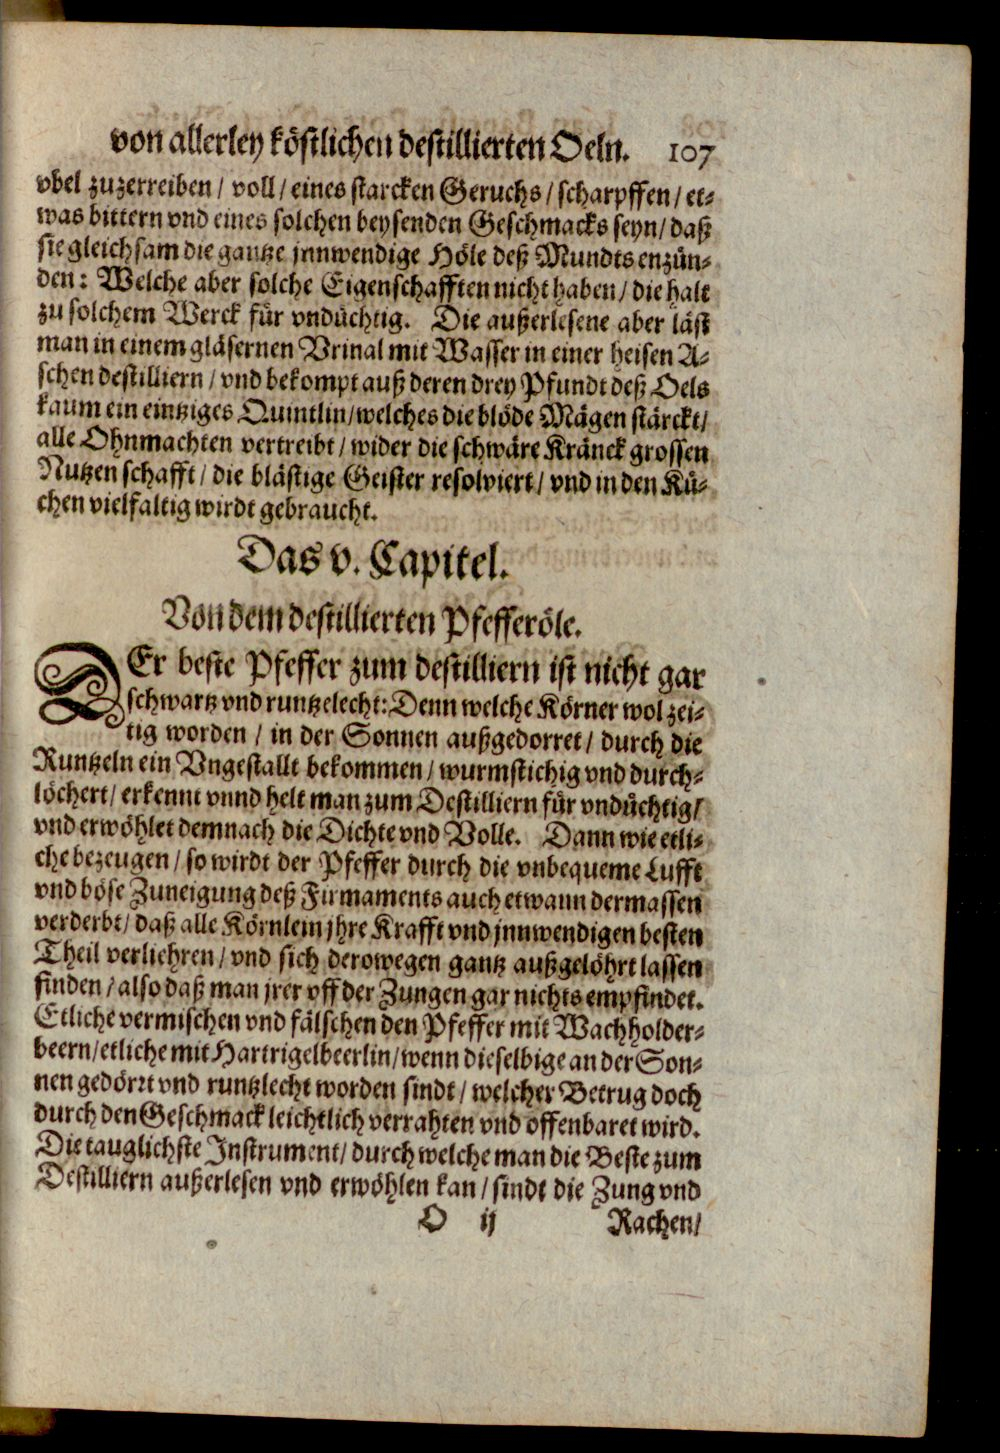 von allerley köstlichen destillierten Oeln. 107
vbel zuzerreiben / voll / eines starcken Geruchs / scharpffen / et⸗
was bittern vnd eines solchen beysenden Geschmacks seyn / daß
sie gleichsam die gantze jnnwendige Höle deß Mundts enzün⸗
den: Welche aber solche Eigenschafften nicht haben / die halt
zu solchem Werck für vndüchtig. Die außerlesene aber läst
man in einem gläsernen Vrinal mit Wasser in einer heisen A⸗
schen destilliern / vnd bekompt auß deren drey Pfundt deß Oels
kaum ein eintziges Quintlin / welches die blöde Mägen stärckt /
alle Ohnmachten vertreibt / wider die schwäre Kränck grossen
Nutzen schafft / die blästige Geister resolviert / vnd in den Kü⸗
chen vielfaltig wirdt gebraucht.
Das v. Capitel.
Von dem destillierten Pfefferöle.
DEr beste Pfeffer zum destilliern ist nicht gar
schwartz vnd runtzelecht: Denn welche Körner wol zei⸗
tig worden / in der Sonnen außgedorret / durch die
Runtzeln ein Vngestallt bekommen / wurmstichig vnd durch⸗
löchert / erkennt vnnd helt man zum Destilliern für vndüchtig /
vnd erwöhlet demnach die Dichte vnd Volle. Dann wie etli⸗
che bezeugen / so wirdt der Pfeffer durch die vnbequeme Lufft
vnd böse Zuneigung deß Firmaments auch etwann dermassen
verderbt / daß alle Körnlein jhre Krafft vnd jnnwendigen besten
Theil verliehren / vnd sich derowegen gantz außgelöhrt lassen
finden / also daß man jrer vff der Zungen gar nichts empfindet.
Etliche vermischen vnd fälschen den Pfeffer mit Wachholder⸗
beern / etliche mit Hartrigelbeerlin / wenn dieselbige an der Son⸗
nen gedörrt vnd runtzlecht worden sindt / welcher Betrug doch
durch den Geschmack leichtlich verrahten vnd offenbaret wird.
Die tauglichste Instrument / durch welche man die Beste zum
Destilliern außerlesen vnd erwöhlen kan / sindt die Zung vnd
O ij Rachen /